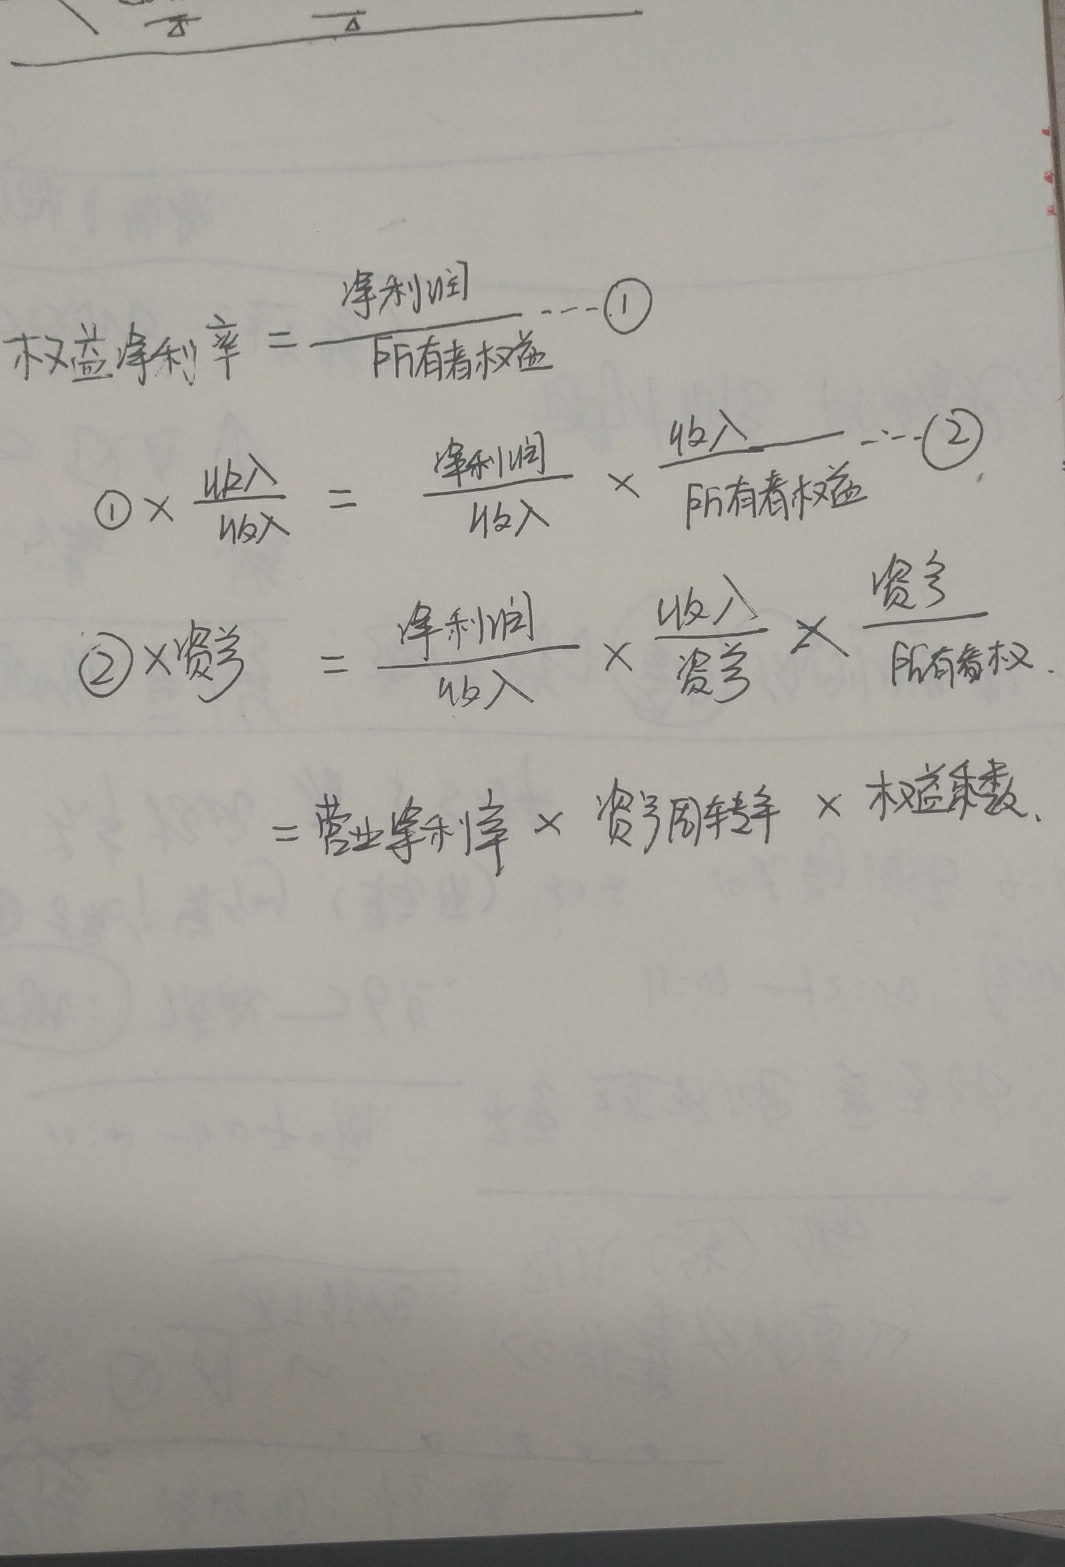 权益净利率 = 净利润 / 所有者权益 ····①
① × 收入 / 收入 = 净利润 / 收入 × 收入 / 所有者权益 ····②
② × 资产 = 净利润 / 收入 × 收入 / 资产 × 资产 / 所有者权.
= 营业净利率 × 资产周转率 × 权益乘数.